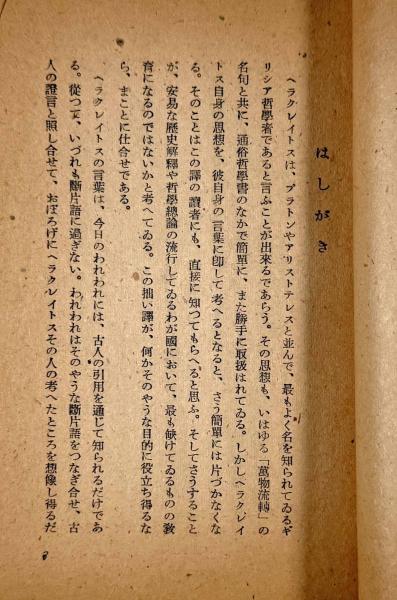 はしがき
ヘラクレイトスは、プラトンやアリストテレスと並んで、最もよく名を知られてゐるギ
リシア哲學者であると言ふことが出來るであらう。その思想も、いはゆる「萬物流轉」の
名句と共に、通俗哲學書のなかで簡單に、また勝手に取扱はれてゐる。しかしヘラクレイ
トス自身の思想を、彼自身の言葉に卽して考へるとなると、さう簡單には片づかなくな
る。そのことはこの譯の讀者にも、直接に知つてもらへると思ふ。そしてさうすること
が、安易な歷史解釋や哲學總論の流行してゐるわが國において、最も缺けてゐるものの敎
育になるのではないかと考へてゐる。この拙い譯が、何かそのやうな目的に役立ち得るな
ら、まことに仕合せである。
ヘラクレイトスの言葉は、今日のわれわれには、古人の引用を通じて知られるだけであ
る。從つて、いづれも斷片語に過ぎない。われわれはそのやうな斷片語をつなぎ合せ、古
人の證言と照し合せて、おぼろげにヘラクレイトスその人の考へたところを想像し得るだ